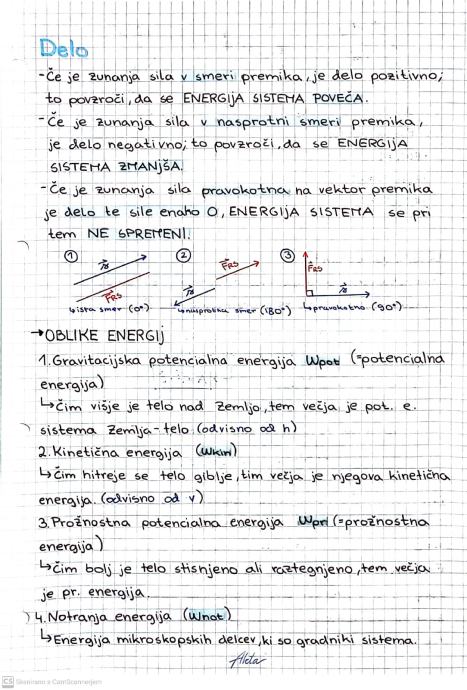 Delo
-Če je zunanja sila v smeri premika, je delo pozitivno;
to povzroči, da se ENERGIJA SISTEMA POVEČA.
-Če je zunanja sila v nasprotni smeri premika,
je delo negativno; to povzroči, da se ENERGIJA
SISTEMA ZMANJŠA.
-Če je zunanja sila pravokotna na vektor premika
je delo te sile enako 0, ENERGIJA SISTEMA se pri
tem NE SPREMENI.
① ② ③
FRS FRS FRS
↳ista smer (0°) ↳nasprotna smer (180°) ↳pravokotno (90°)
→OBLIKE ENERGIJ
1. Gravitacijska potencialna energija Wpot (=potencialna
energija)
↳Čim višje je telo nad Zemljo, tem večja je pot. e.
sistema Zemlja-telo (odvisno od h)
2. Kinetična energija (Wkin)
↳Čim hitreje se telo giblje, tim večja je njegova kinetična
energija. (odvisno od v)
3. Prožnostna potencialna energija Wpr (=prožnostna
energija)
↳Čim bolj je telo stisnjeno ali raztegnjeno, tem večja
je pr. energija.
4. Notranja energija (Wnot)
↳Energija mikroskopskih delcev, ki so gradniki sistema.
CS Skenirano z CamScannerjem